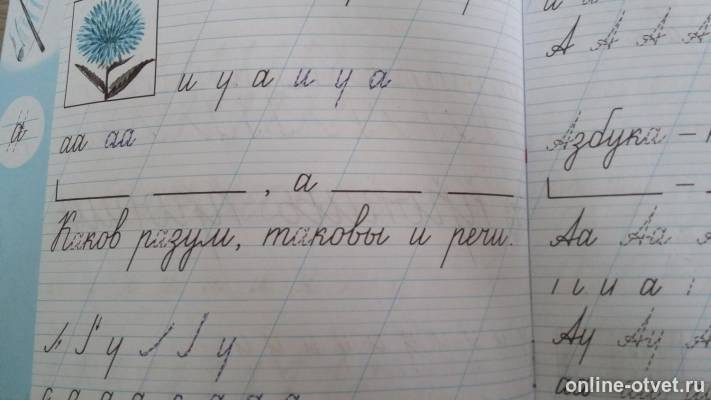 и у а и у а
аа аа
, а
Каков разум, таковы и речи.
у у
А А А А
Азбука –
–
Аа Аа
и а
Ау Ау А
аш
online-otvet.ru